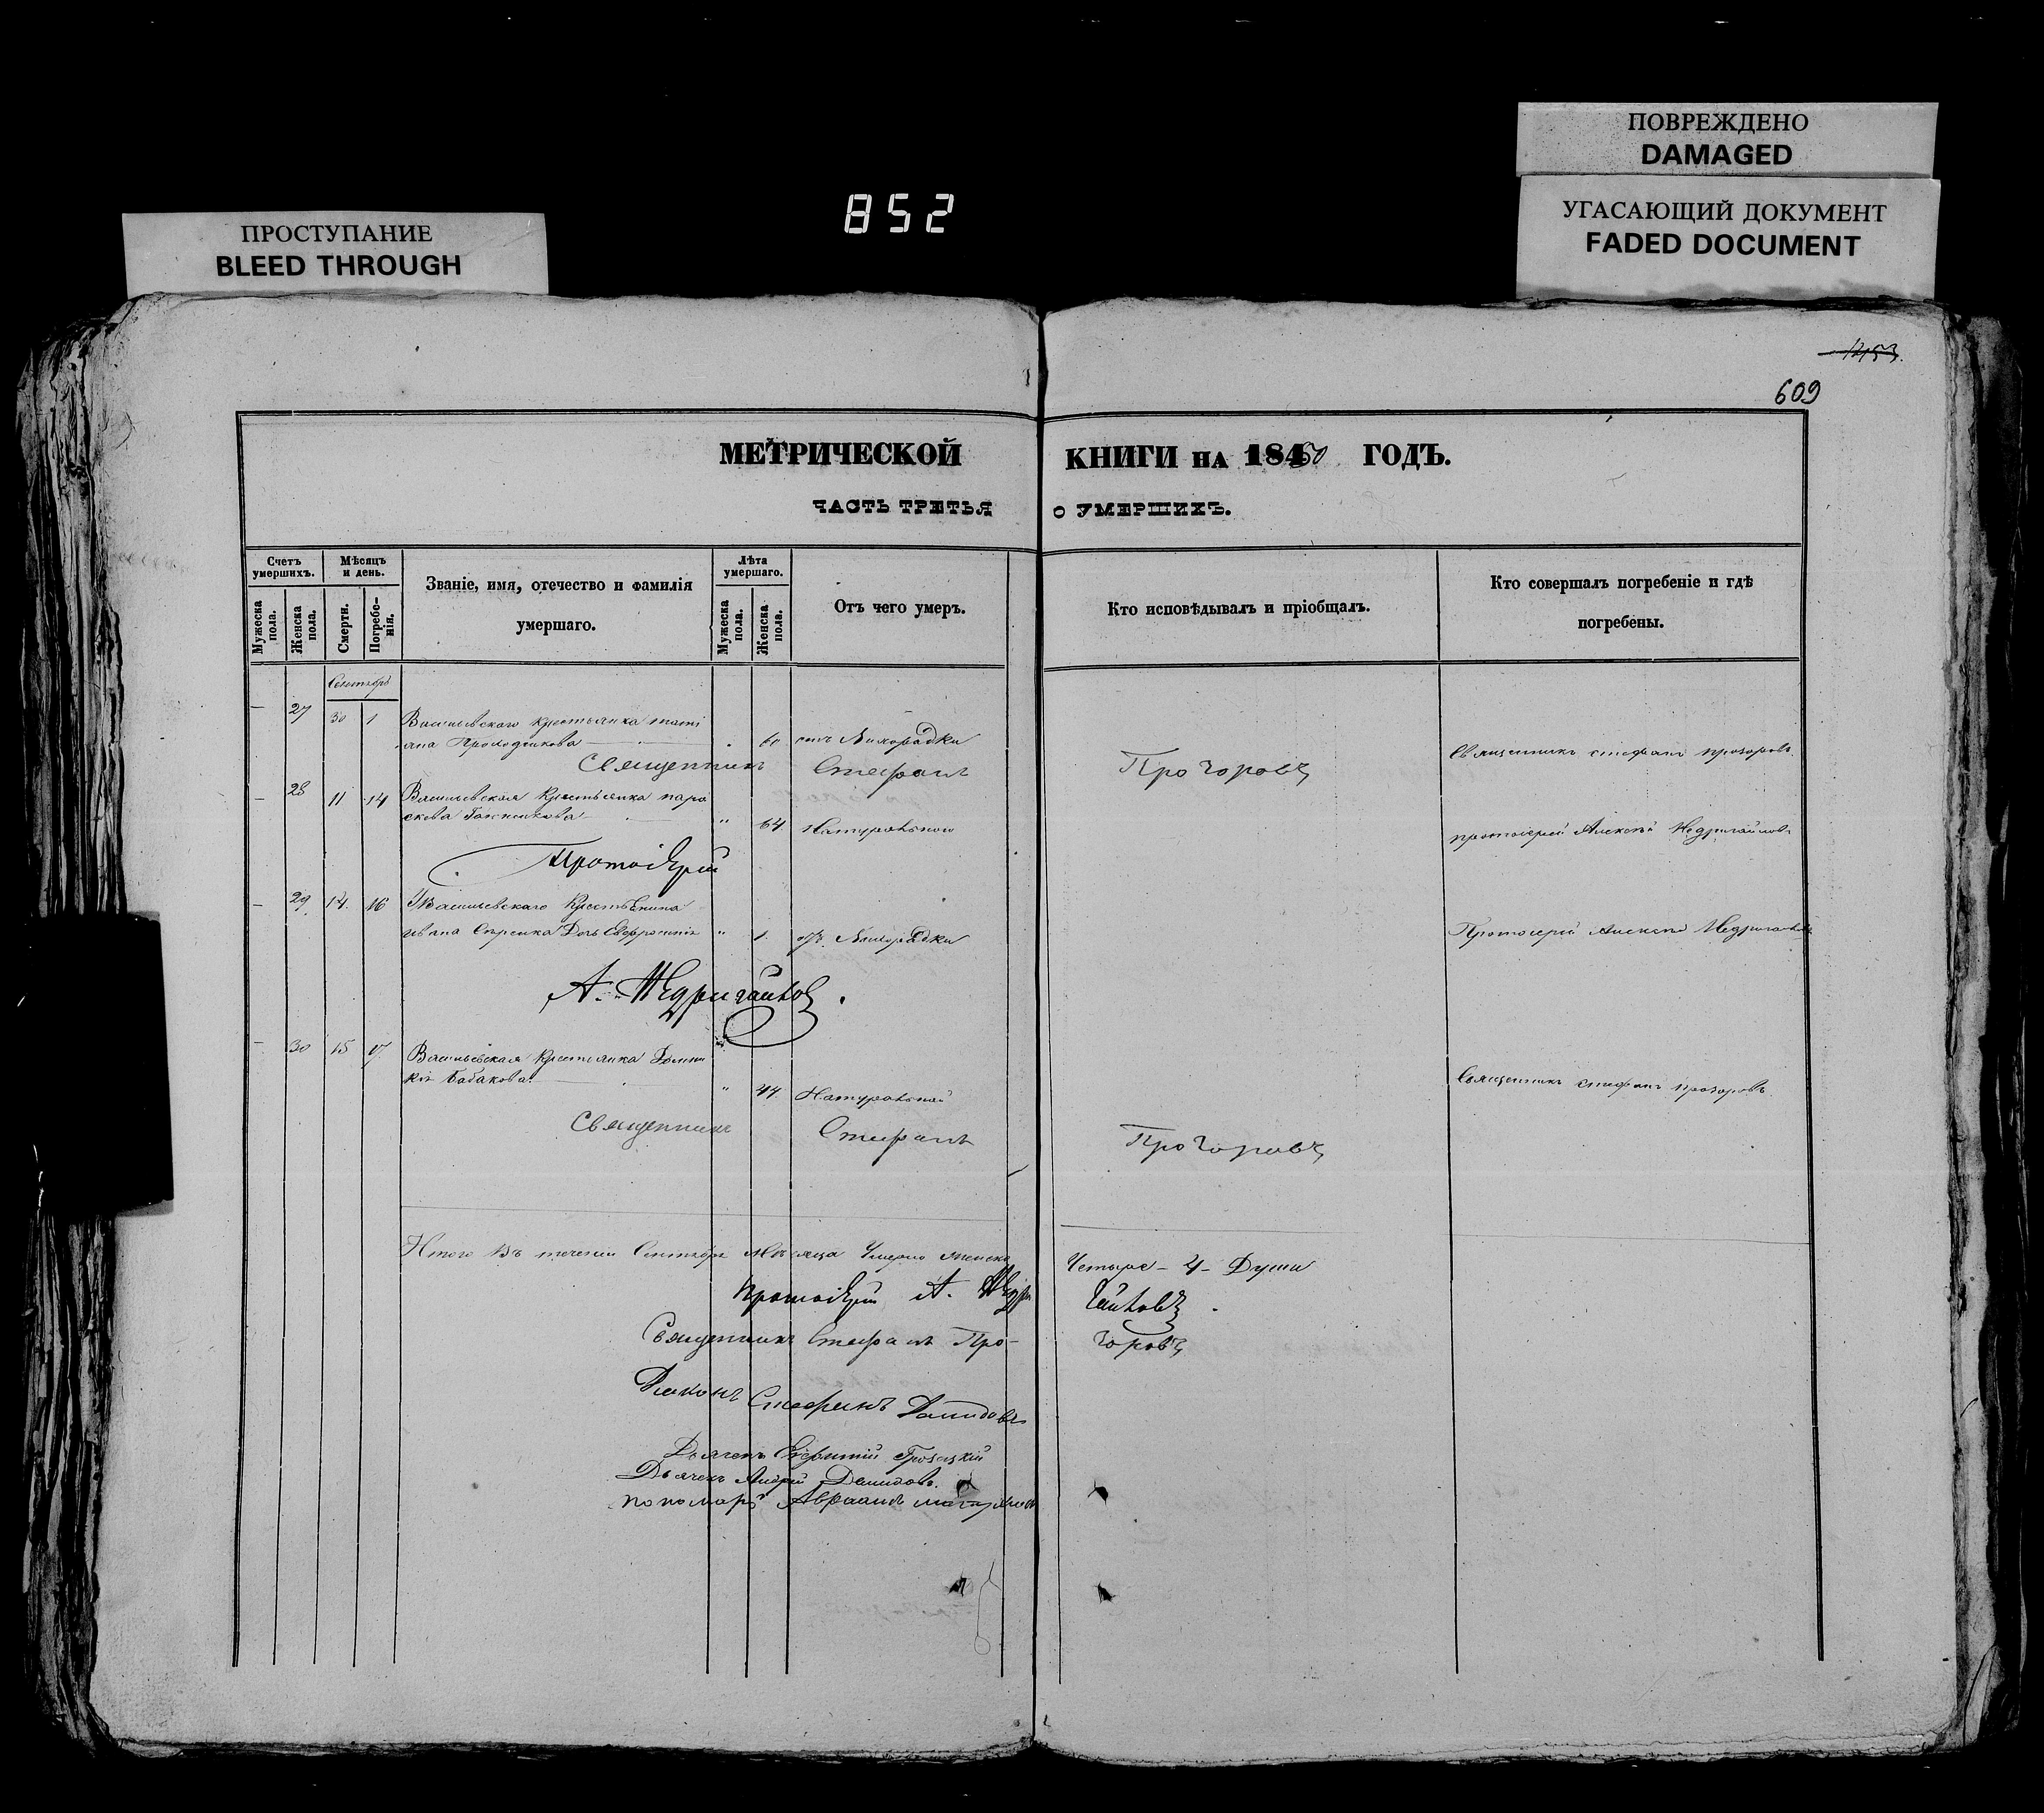 ПОВРЕЖДЕНО
DAMAGED
УГАСАЮЩИЙ ДОКУМЕНТ
FADED DOCUMENT
852
ПРОСТУПАНИЕ
BLEED THROUGH
609
МЕТРИЧЕСКОЙ КНИГИ НА 18450 ГОДЪ.
ЧАСТЬ ТРЕТЬЯ О УМЕРШИХЪ.
Счетъ умершихъ.
Мѣсяцъ и день.
Званіе, имя, отечество и фамилія умершаго.
Лѣта умершаго.
Отъ чего умеръ.
Кто исповѣдывалъ и пріобщалъ.
Кто совершалъ погребеніе и гдѣ погребены.
Мужеска пола.
Женска пола.
Смерти.
Погребенія.
Мужеска пола.
Женска пола.
Сентябрь
27 30 1 Васильевскаго крестьянка тати
яна 60 Лихорадки
Священникъ Стефанъ Прозоровъ
Священникъ стефанъ прозоровъ
28 11 14 Васильевская крестьянка пара
скева 64 Натуральною
протоіерей Алексѣй Недригайловъ
Протоіерей
29 14 16 Васильевскаго крестьянина
ивана дочь Евфросинія 1 Лихорадки
Протоіерей Алексѣй Недригайловъ
А. Недригайловъ.
30 15 17 Васильевская крестьянка
кія Бабакова 44 Натуральной
Священникъ стефанъ прозоровъ
Священникъ Стефанъ Прозоровъ
Итого въ теченіи Сентября мѣсяца умерло женска Четыре - 4 - Души
протоіерей А. Недригайловъ.
Священникъ Стефанъ Прозоровъ
Діаконъ Стефанъ Давидовъ
Дьячекъ Евфимій
Дьячекъ Андрей Давидовъ.
пономарь Авраамъ